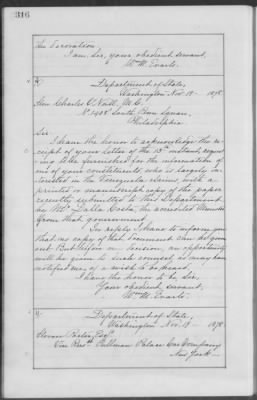 316
the Execution.
I am, Sir, your obedient servant,
Wm. M. Evarts.
Department of State,
Washington Nov. 18 1878
Hon. Charles O'Neill, M.C.
No. 1408 South Penn Square,
Philadelphia.
Sir
I have the honor to acknowledge the re-
ceipt of your letter of the 15th instant, reques-
ting to be furnished for the information of
one of your constituents, who is largely in-
terested in the Venezuela claims, with a
printed or manuscript copy of the paper
recently submitted to this Department
by Dalla Costa, the accredited Minister
from that government.
In reply I have to inform you
that no copy of that document can be given
out. But before a decision, an opportunity
will be given to such counsel as may have
notified me of a wish to be heard.
I have the honor to be, Sir,
Your obedient servant,
Wm. M. Evarts.
Department of State,
Washington Nov. 18 1878
Porter, Esq.
Vice Prest. Pullman Palace Car Company
New York